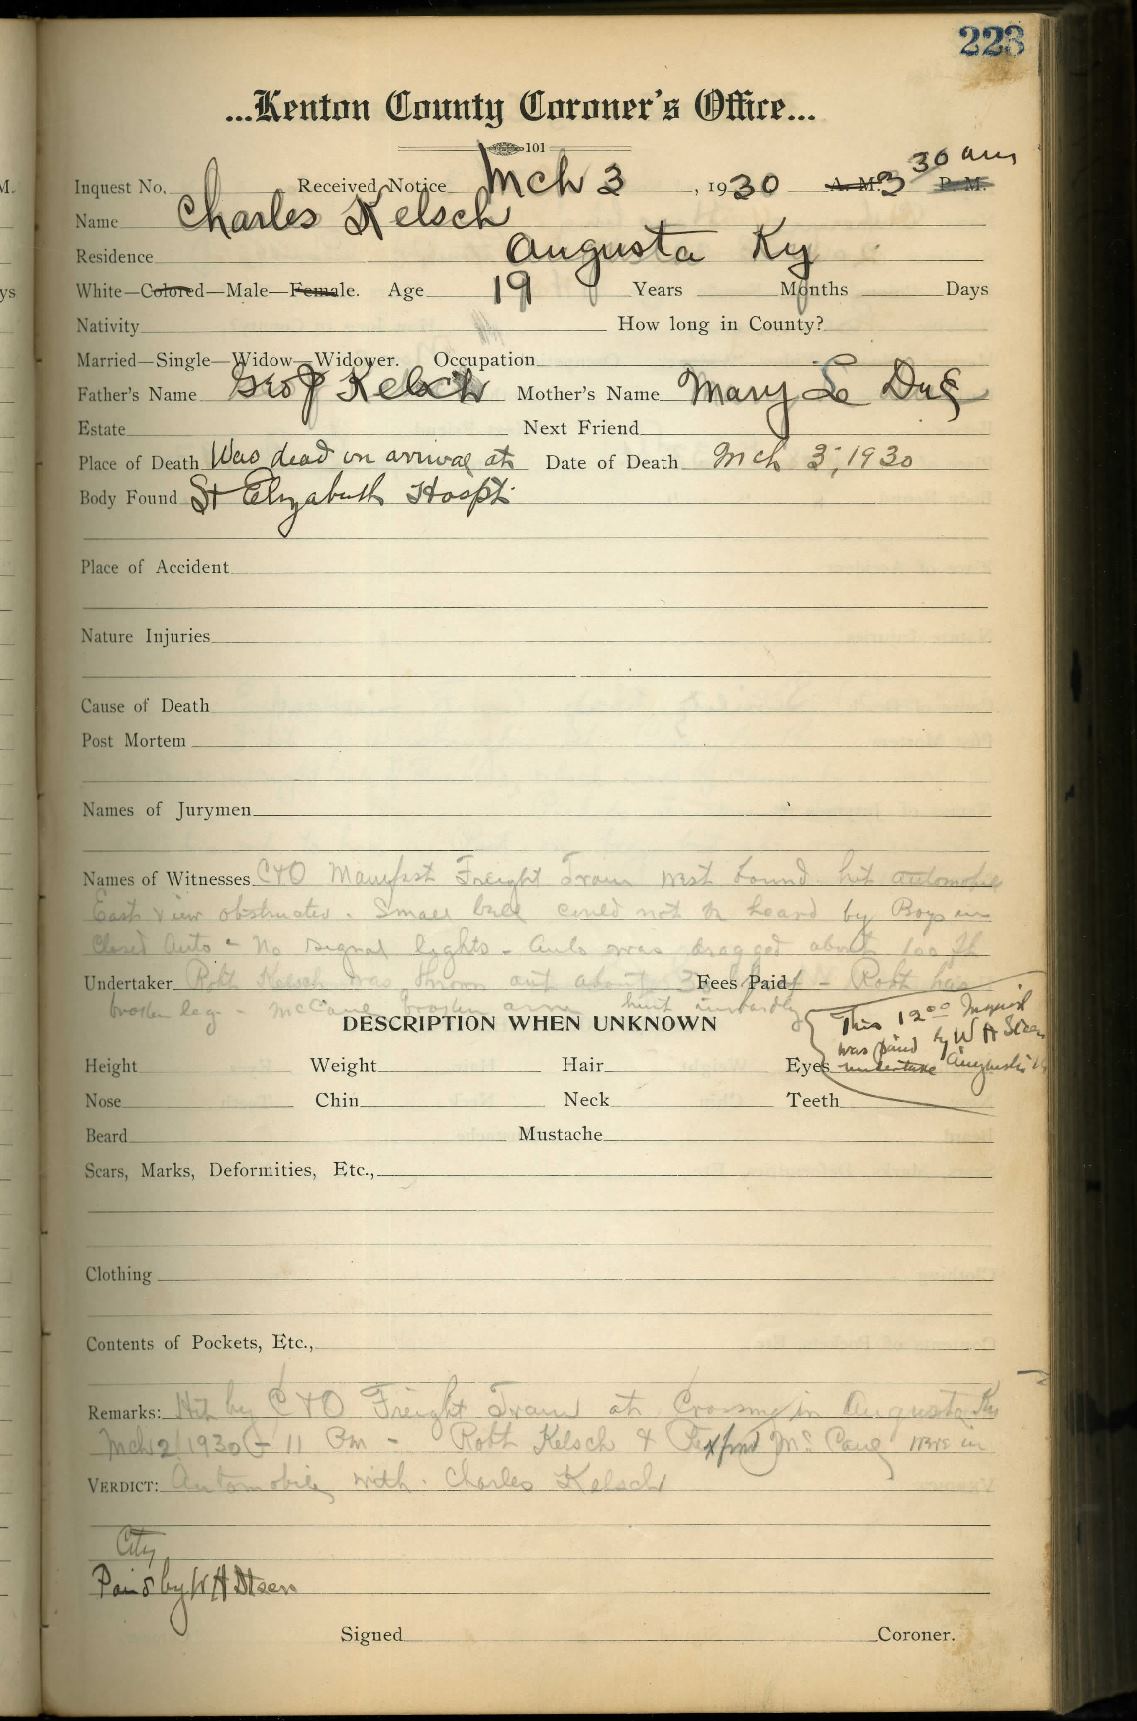 223
...Kenton County Coroner's Office...
101
Inquest No. Received Notice Mch 3, 1930 A. M. 3 30 am P. M.
Name Charles Kelsch
Residence Augusta Ky
White—Colored—Male—Female. Age 19 Years Months Days
Nativity How long in County?
Married—Single—Widow—Widower. Occupation
Father's Name Geo J Kelsch Mother's Name Mary Le
Estate Next Friend
Place of Death Was dead on arrival at Date of Death Mch 3, 1930
Body Found St Elizabeth Hospt.
Place of Accident
Nature Injuries
Cause of Death
Post Mortem
Names of Jurymen
Names of Witnesses C+O Manifest Freight Train West bound hit automobile
East view obstructed. Small bell could not be heard by Boys in
Closed Auto - No signal lights - Auto was dragged about 100 ft
Undertaker Robt Kelsch was thrown out about Fees Paid Robt has
broken leg - McCane broken arm hurt inwardly
This 12 00 Inquest
was paid by W H
undertake Augusta
DESCRIPTION WHEN UNKNOWN
Height Weight Hair Eyes
Nose Chin Neck Teeth
Beard Mustache
Scars, Marks, Deformities, Etc.,
Clothing
Contents of Pockets, Etc.,
Remarks: Hit by C+O Freight Train at Crossing in Augusta Ky
Mch 2/1930 - 11 Pm - Robt Kelsch & McCane were in
VERDICT: Automobile with Charles Kelsch
City
Paid by W H
Signed Coroner.